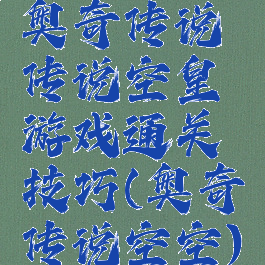 奥奇传说
传说空皇
游戏通关
技巧(奥奇
传说空空)